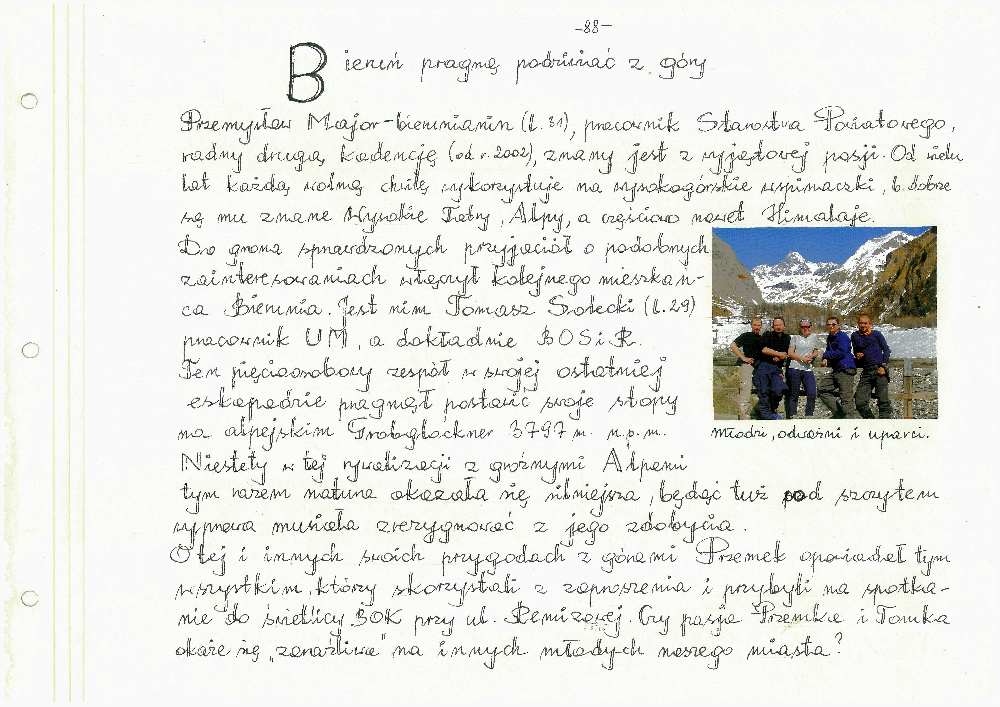 -88-
Bieruń pragnę podziwiać z góry
Przemysław Major-bierunianin (l.31), pracownik Starostwa Powiatowego,
radny drugą kadencję (od r.2002), znany jest z wyjątowej pasji. Od wielu
lat każdą wolną chwilę wykorzystuje na wysokogórskie wspinaczki, b. dobrze
są mu znane Wysokie Tatry, Alpy, a częściowo nawet Himalaje.
Do grona sprawdzonych przyjaciół o podobnych
zainteresowaniach włączył kolejnego mieszkań-
ca Bierunia. Jest nim Tomasz Solecki (l.29)
pracownik UM, a dokładnie BOSiR.
Ten pięcioosobowy zespół w swojej ostatniej
eskapadzie pragnął postawić swoje stopy
na alpejskim Grobglockner 3797 m. n.p.m.
młodzi, odważni i uparci.
Niestety w tej rywalizacji z groźnymi Alpami
tym razem natura okazała się silniejsza, będąc tuż pod szczytem
wyprawa musiała zrezygnować z jego zdobycia.
O tej i innych swoich przygodach z górami Przemek opowiadał tym
wszystkim, którzy skorzystali z zaproszenia i przybyli na spotka-
nie do świetlicy BOK przy ul. Remizowej. Czy pasja Przemka i Tomka
okaże się „zaraźliwa" na innych młodych naszego miasta?